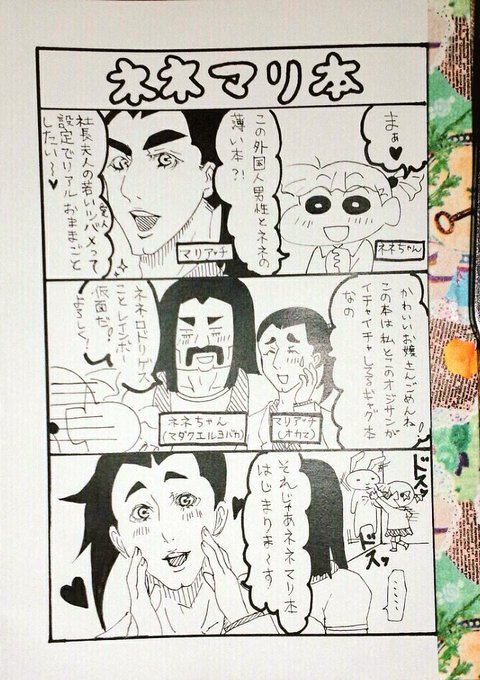 ネネマリ本
まぁ♥
ネネちゃん
この外国人男性とネネの
薄い本?!
マリアッチ
社長夫人の若いツバメって
設定でリアルおままごと
したい〜♥
かわいいお嬢さんごめんね
この本は私とこのオジサンが
イチャイチャしてるギャグ本
なの
マリアッチ
(オカマ)
ネネちゃん
(マダクエルヨバカ)
ネネロドリゲス
ことレインボー
仮面だ!
よろしく!
ドスッ
ドスッ
それじゃあネネマリ本
はじまりま〜す!